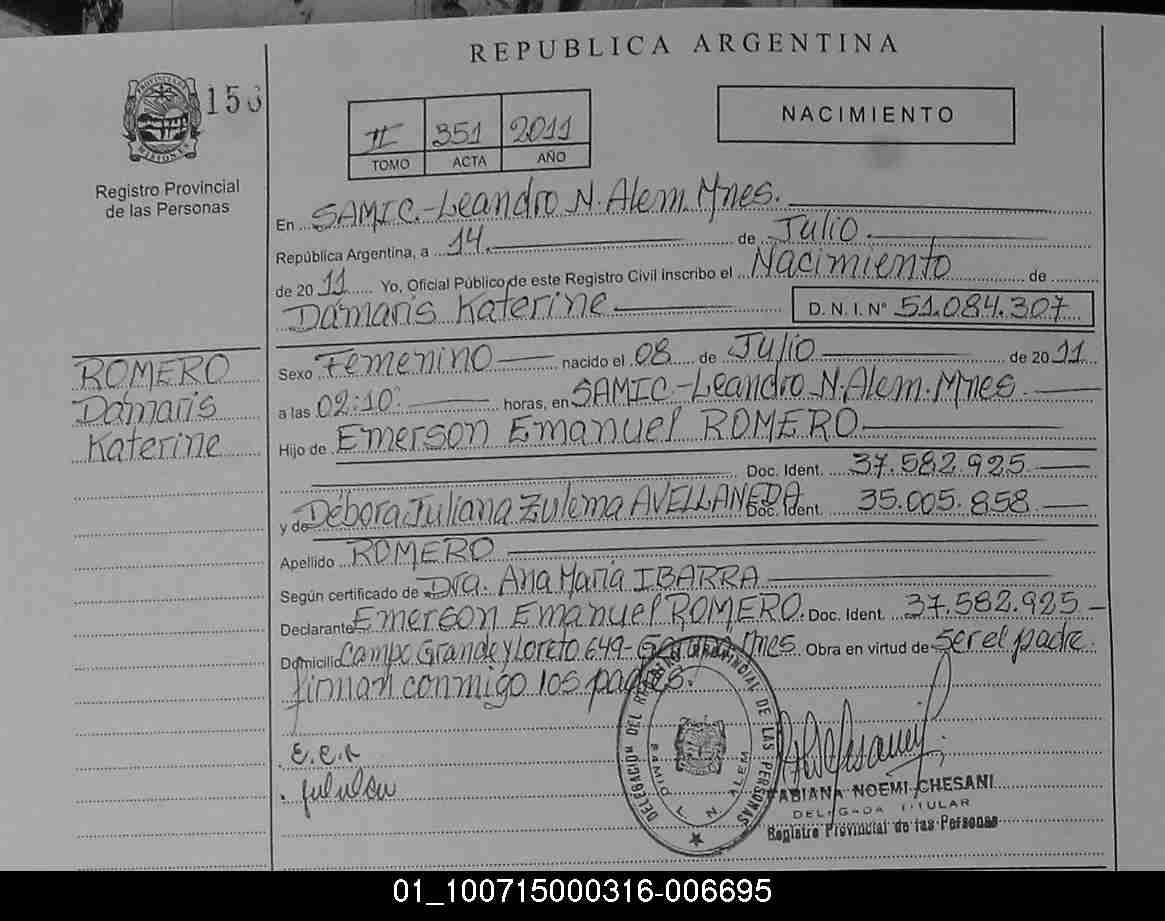 REPUBLICA ARGENTINA
PROVINCIA DE
MISIONES
156
Registro Provincial
de las Personas
II 351 2011
TOMO ACTA AÑO
NACIMIENTO
En SAMIC.-Leandro N. Alem. Mnes.
República Argentina, a 14. de Julio
de 2011 Yo, Oficial Público de este Registro Civil inscribo el Nacimiento de
Dámaris Katerine D.N.I. Nº 51.084.307
ROMERO
Dámaris
Katerine
Sexo Femenino nacido el 08 de Julio de 2011
a las 02:10 horas, en SAMIC-Leandro N. Alem. Mnes
Hijo de Emerson Emanuel ROMERO
Doc. Ident. 37.582.925
y de Débora Juliana Zulema AVELLANEDA Doc. Ident. 35.005.858
Apellido ROMERO
Según certificado de Dra. Ana María IBARRA
Declarante Emerson Emanuel ROMERO. Doc. Ident. 37.582.925
Domicilio Campo Grande y Loreto 649- Mnes. Obra en virtud de ser el padre.
firman conmigo los padres.
E.E.R
DELEGACION DEL REGISTRO PROVINCIAL DE LAS PERSONAS
SAMIC L. N. ALEM
FABIANA NOEMI CHESANI
DELEGADA TITULAR
Registro Provincial de las Personas
01_100715000316-006695